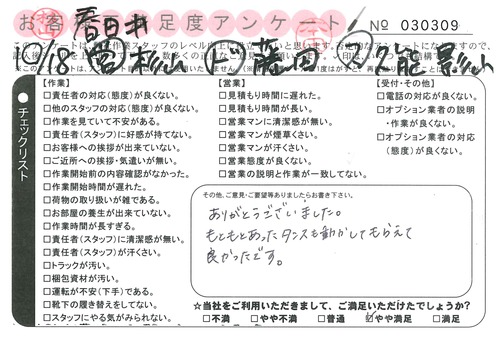 お客 足度アンケート No 030309
春日井
10/18
藤田
【作業】
□責任者の対応(態度)が良くない。
□他のスタッフの対応(態度)が良くない。
□作業を見ていて不安がある。
□責任者(スタッフ)に好感が持てない。
□お客様への挨拶が出来ていない。
□ご近所への挨拶・気遣いが無い。
□作業開始前の内容確認がなかった。
□作業開始時間が遅れた。
□荷物の取り扱いが雑である。
□お部屋の養生が出来ていない。
□作業時間が長すぎる。
□責任者(スタッフ)に清潔感が無い。
□責任者(スタッフ)が汗くさい。
□トラックが汚い。
□梱包資材が汚い。
□運転が不安(下手)である。
□靴下の履き替えをしてない。
□スタッフにやる気がみられない。
●チェックリスト
【営業】
□見積もり時間に遅れた。
□見積もり時間が長い。
□営業マンに清潔感が無い。
□営業マンが煙草くさい。
□営業マンが汗くさい。
□営業態度が良くない。
□営業の説明と作業が一致してない。
【受付・その他】
□電話の対応が良くない。
□オプション業者の説明
・作業が良くない。
□オプション業者の対応
(態度)が良くない。
その他、ご意見・ご要望等ありましたらお書き下さい。
ありがとうございました。
もともとあったタンスも動かしてもらえて
良かったです。
☆当社をご利用いただきまして、ご満足いただけたでしょうか?
□不満 □やや不満 □普通 ☑やや満足 □満足